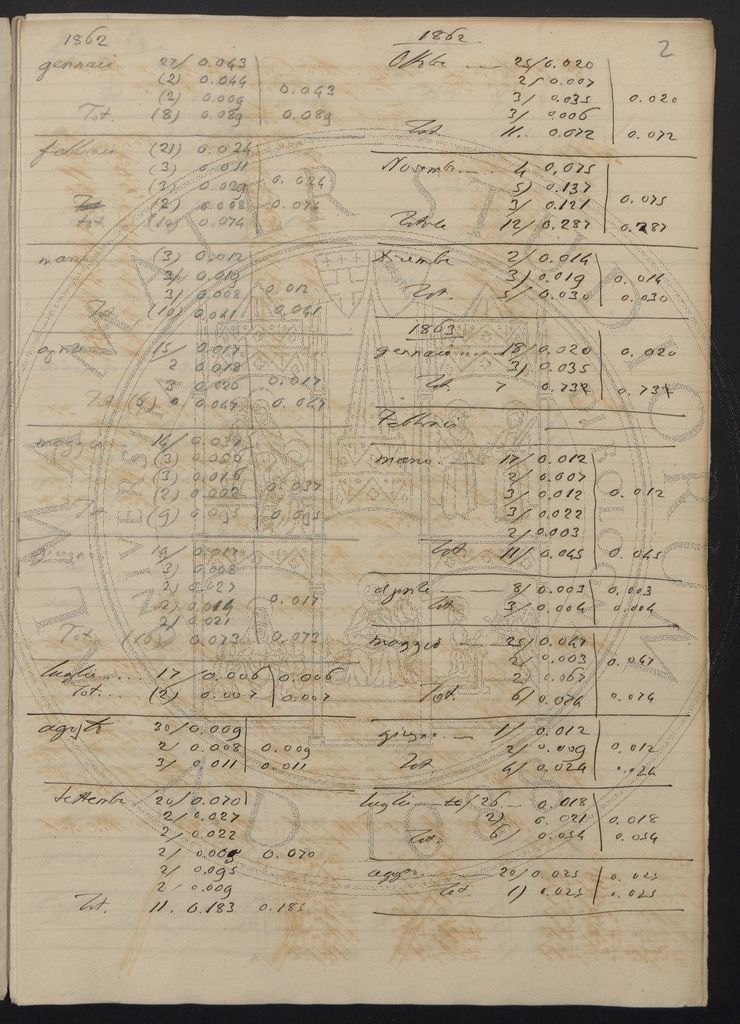 1862
gennaio 27/ 0.043
(2) 0.044
(2) 0.009 0.043
Tot. (8) 0.089 0.089
febbraio (21) 0.024
(3) 0.011
(3) 0.020 0.024
(2) 0.008 0.074
tot (10) 0.074
(3) 0.012
3/ 0.019
3/ 0.008 0.012
Tot (10) 0.041 0.041
15/ 0.017
2 0.018
3 0.006 0.017
Tot (6) 0.047 0.047
maggio 14/ 0.037
(3) 0.050
(3) 0.016
(2) 0.002 0.037
Tot (9) 0.095 0.095
giugno 19/ 0.017
3) 0.008
2) 0.027
2) 0.014 0.017
2/ 0.021
Tot (10) 0.073 0.073
luglio .... 17/ 0.006 0.006
Tot... (2) 0.007 0.007
agosto 30/ 0.009
2/ 0.008 0.009
3/ 0.011 0.011
Settembre 20/ 0.070
2/ 0.027
2/ 0.022
2/ 0.070
2/ 0.095
2/ 0.009
Tot. 11. 0.183 0.185
2
1862
25/ 0.020
2/ 0.007
3/ 0.035 0.020
3/ 0.006
Tot. 11. 0.072 0.072
Novembre .... 4 0.075
5) 0.137
3/ 0.121 0.075
Totale 12/ 0.287 0.287
Xcembre 2/ 0.014
3) 0.019 0.014
Tot. 5/ 0.030 0.030
1863
gennaio 18/ 0.020 0.020
3) 0.035
Tot. 7 0.732 0.732
Febbraio
marzo. 17/ 0.012
2/ 0.007
3/ 0.012 0.012
3/ 0.022
2/ 0.003
Tot. 11/ 0.045 0.045
aprile 8/ 0.003 0.003
Tot. 3/ 0.004 0.004
maggio 25/ 0.047
2/ 0.003 0.047
2 0.067
Tot. 6/ 0.074 0.074
giugno 1/ 0.012
2/ 0.009 0.012
Tot 4/ 0.024 0.024
luglio 26 0.018
2) 0.021 0.018
Tot. 6) 0.054 0.054
20/ 0.025 0.025
Tot. 1) 0.025 0.025
ALMA MATER STUDIORUM
A.D. 1088